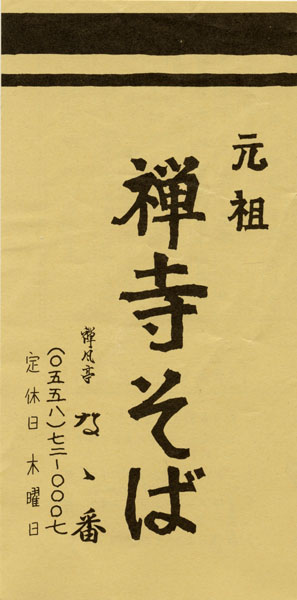 元祖
禅寺そば
禅風亭 なゝ番
(〇五五八)七二ー〇〇〇七
定休日 木曜日